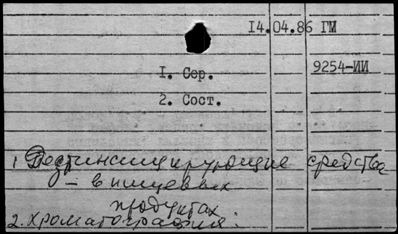 14.04.86 ГМ
1. Сер.
9254-ИИ
2. Сост.
1. Дезинфицирующие средства
– в пищевых
продуктах
2. Хроматография.